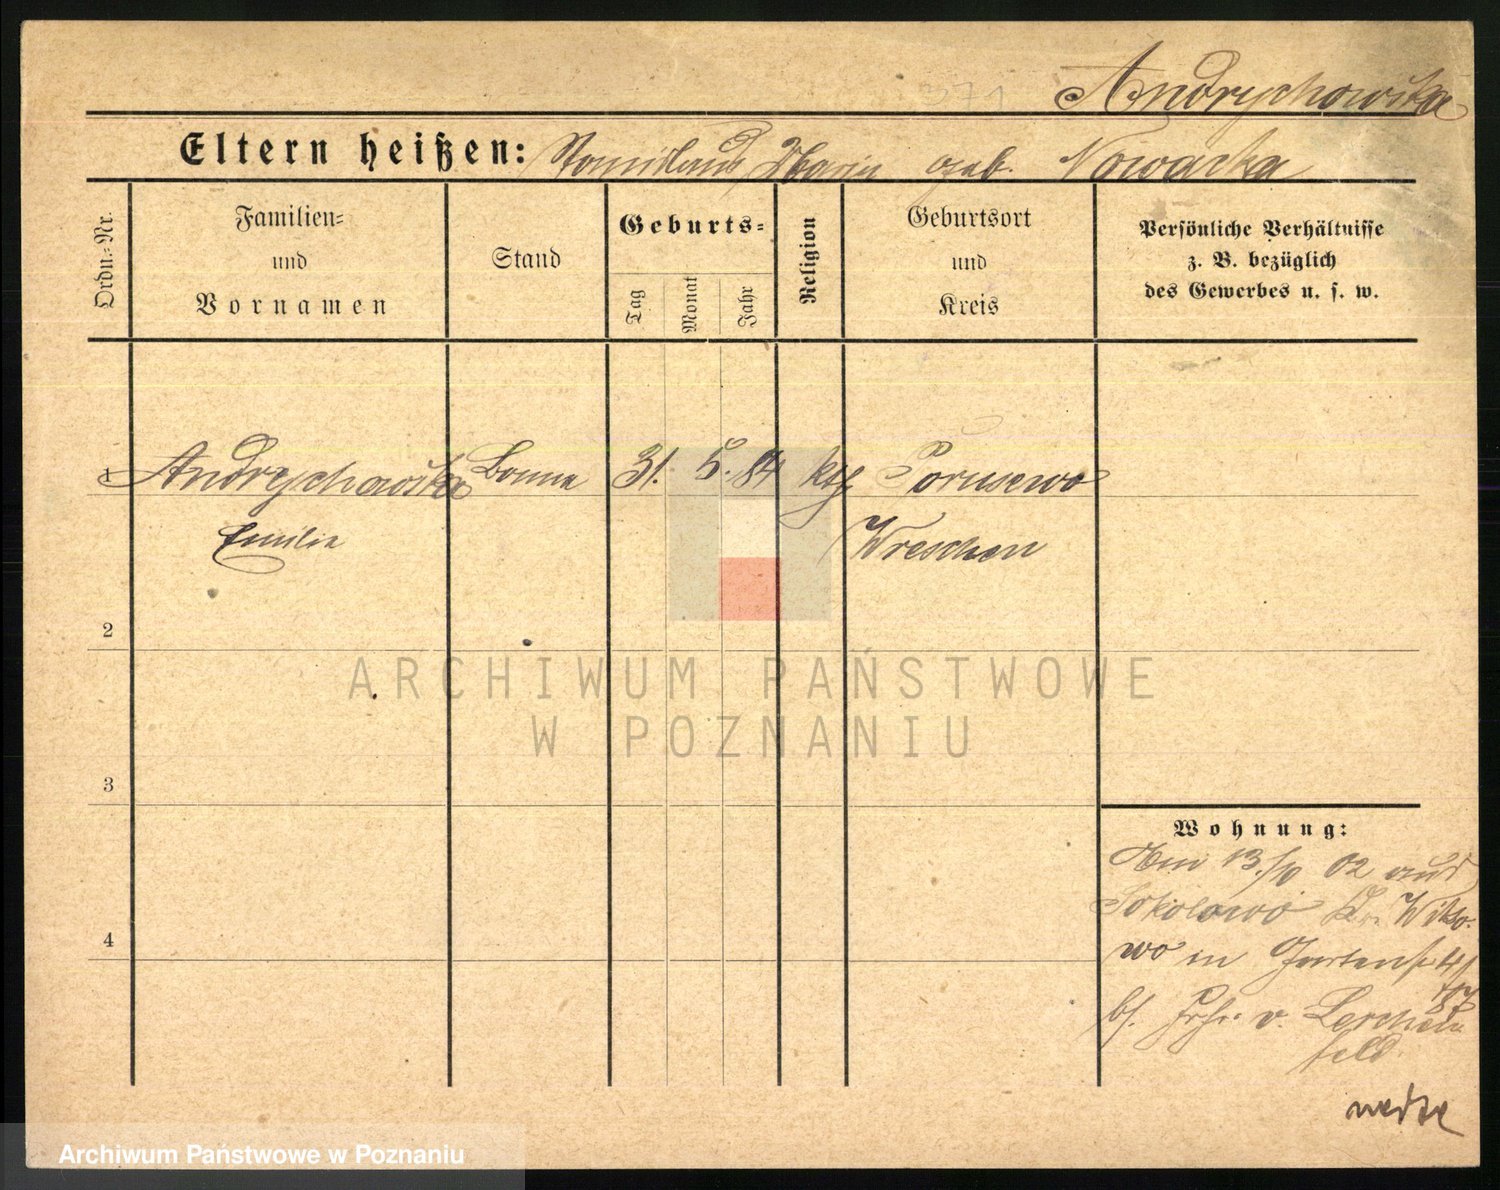 371
Andrychowska
Eltern heißen: Stanislaus, Maria geb. Nowacka
Ordn.-Nr.
Familien-
und
Vornamen
Stand
Geburts-
Tag
Monat
Jahr
Religion
Geburtsort
und
Kreis
Persönliche Verhältnisse
z. B. bezüglich
des Gewerbes u. s. w.
1 Andrychowska Bonne 31. 5. 84 kth Porusewo
Emilie Wreschen
2
ARCHIWUM PAŃSTWOWE
W POZNANIU
3
Wohnung:
Am 13./ 02 aus
Sokolowo Kr. Witko-
4
wo in Gartenstr.
bs. Frhr. v. Lerchen
feld.
Archiwum Państwowe w Poznaniu